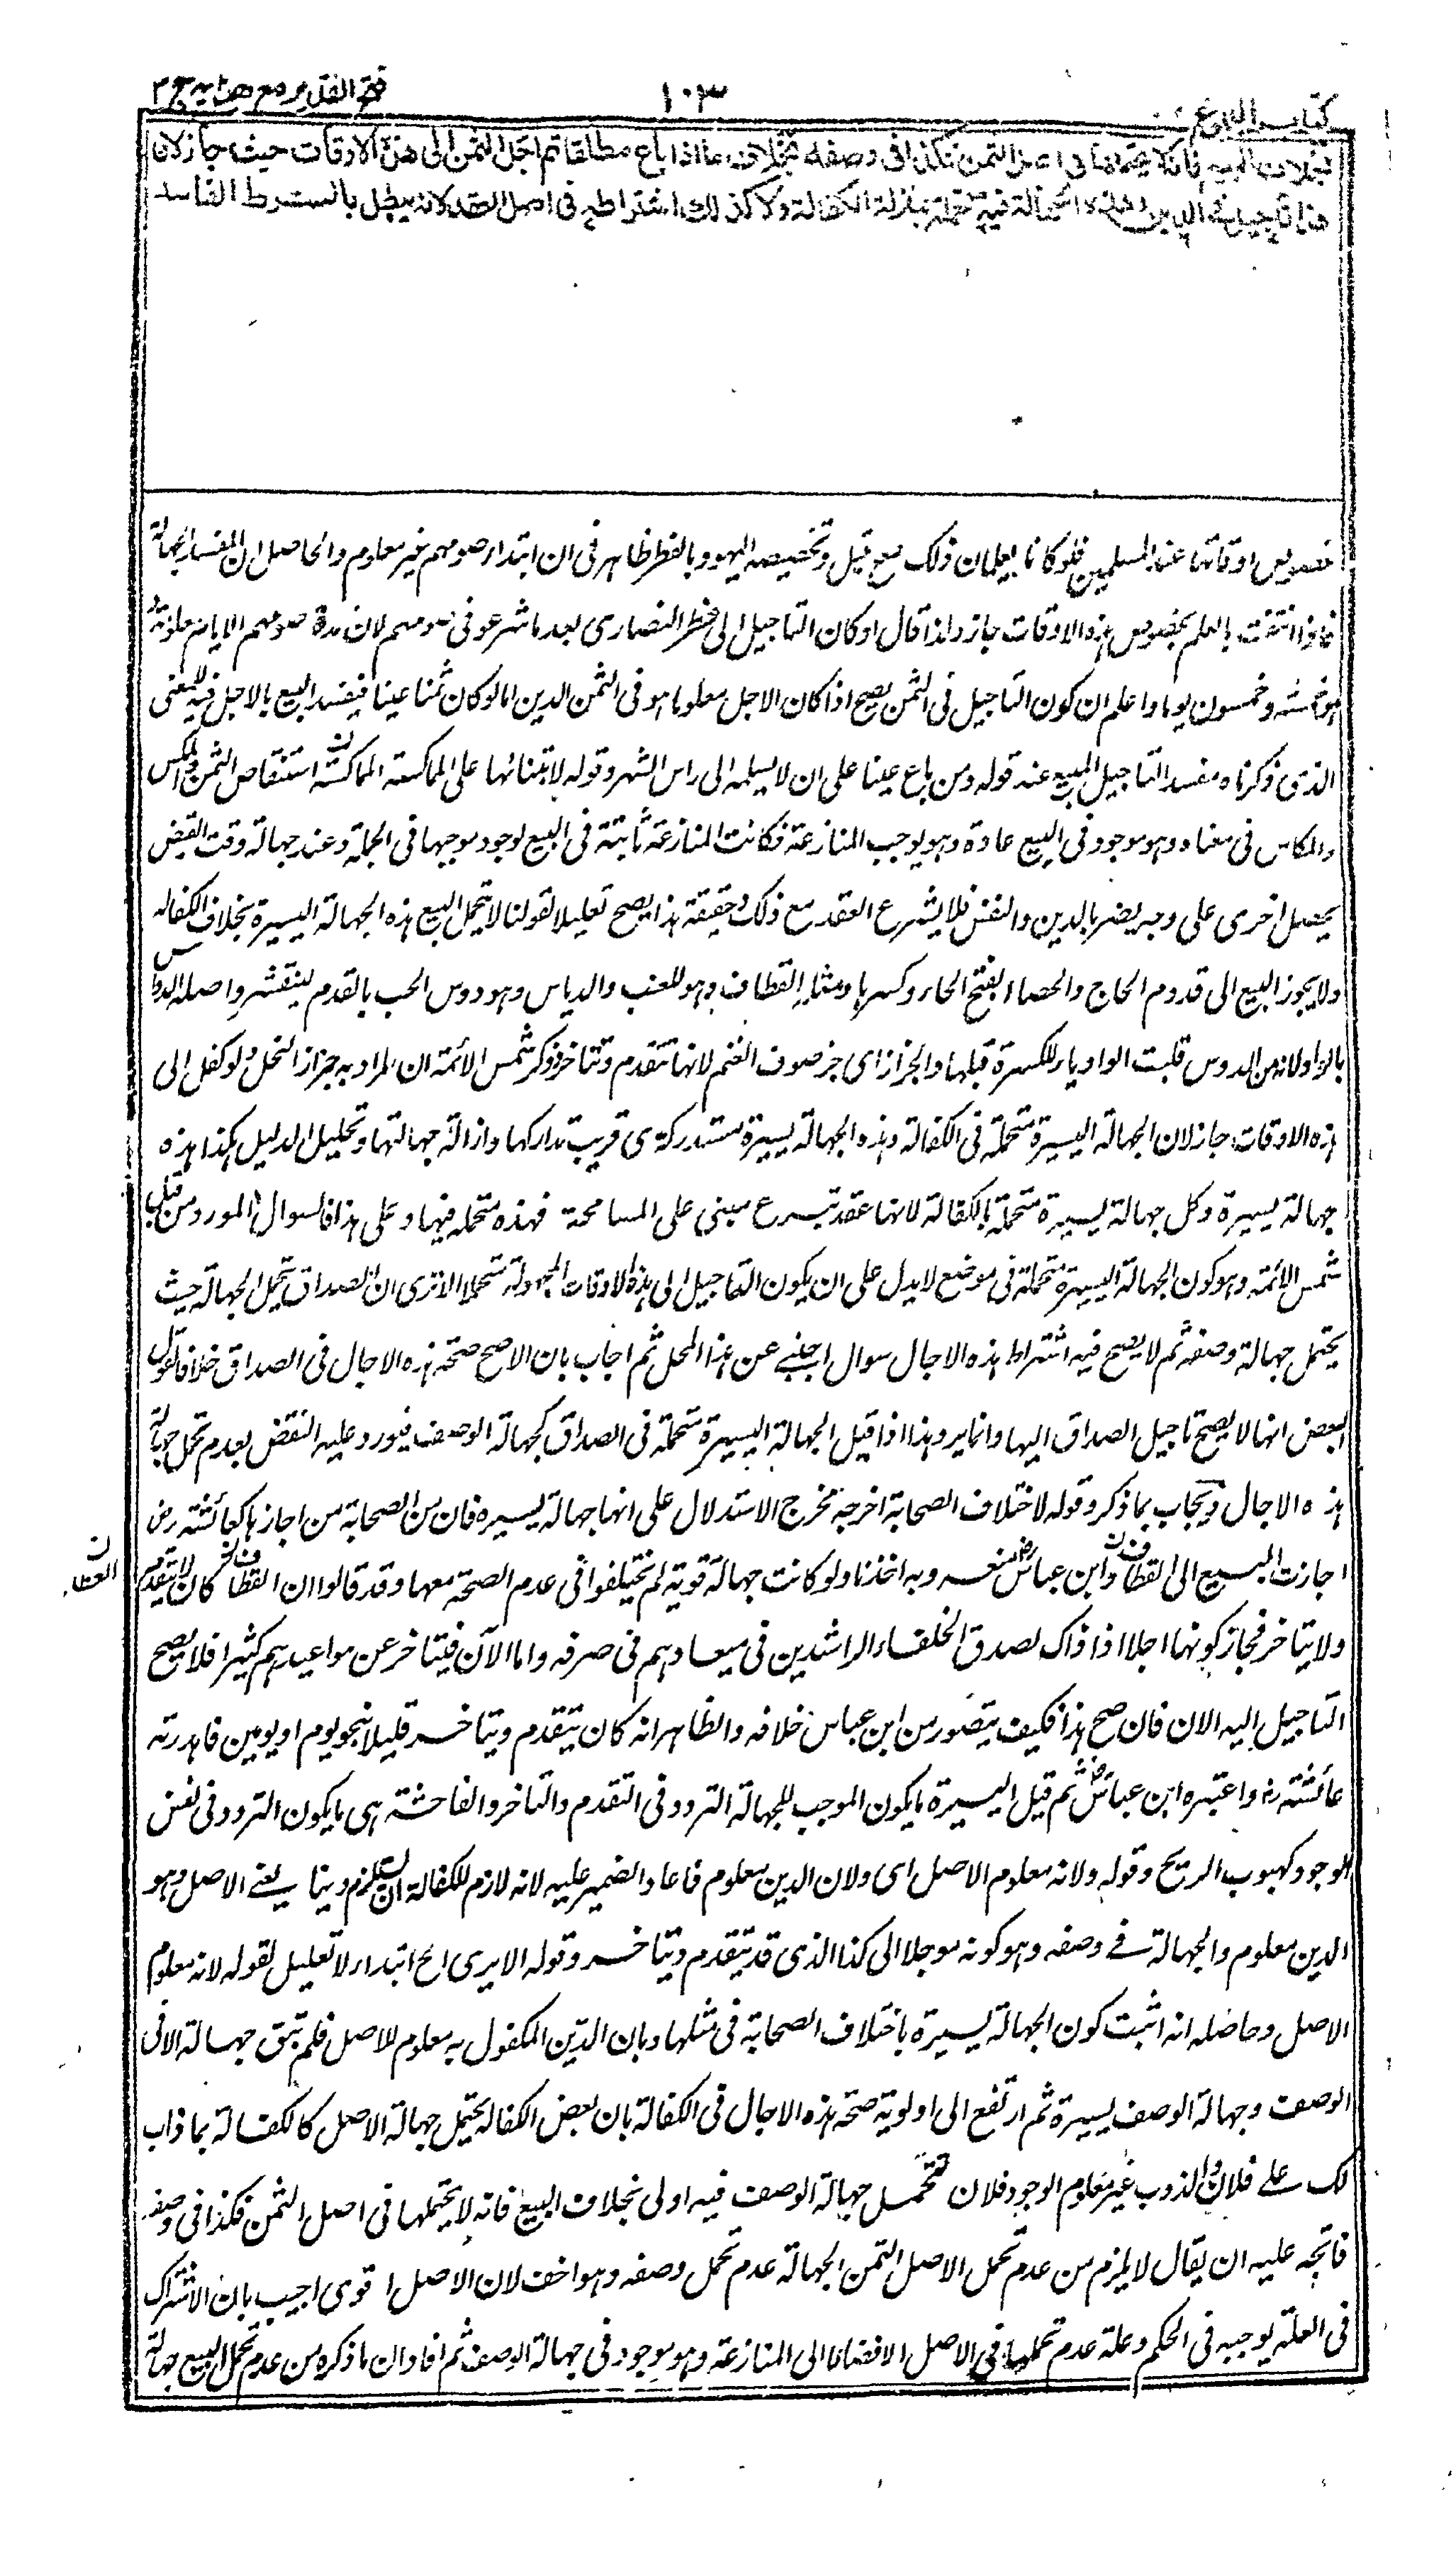 كتاب البيوع
١٠٣
فتح القدير مع هدايه ج ٣
بخلاف البيع فانه لا يحتملها فى اصل الثمن فكذا فى وصفه بخلاف ما اذا باع مطلقا ثم اجل الثمن الى هذه الاوقات حيث جاز لان
هذا تاجيل فى الدين وهذه الجهالة فيه متحملة بمنزلة الكفالة ولا كذلك اشتراطه فى اصل العقد لانه يبطل بالشرط الفاسد
خصوص اوقاتها عند المسلمين فلو كانا يعلمان ذلك صح قيل وتخصيصه اليهود بالفطر ظاهر فى ان ابتداء صومهم غير معلوم والحاصل ان المفسد الجهالة
فاذا انتفت بالعلم بخصوص هذه الاوقات جاز ولذا قال او كان التاجيل الى فطر النصارى بعد ما شرعوا فى صومهم لان مدة صومهم الايام معلومة و
هو خمسة وخمسون يوما واعلم ان كون التاجيل فى الثمن يصح اذا كان الاجل معلوما هو فى الثمن الدين اما لو كان ثمنا عينا فيفسد البيع بالاجل فيه للمعنى
الذى ذكرناه مفسد التاجيل المبيع عند قوله ومن باع عينا على ان لا يسلمه الى راس الشهر وقوله لابتنائها على المماكسة المماكسة استنقاص الثمن والمكس
والمكاس فى معناه وهو موجود فى البيع عادة وهو يوجب المنازعة فكانت المنازعة ثابتة فى البيع لوجود موجبها فى الجملة وعند جهالة وقت القبض
يحصل اخرى على وجه يضر بالدين والنفس فلا يشرع العقد مع ذلك وحقيقة هذا يصح تعليلا لقولنا لا يتحمل البيع هذه الجهالة اليسيرة بخلاف الكفاله
ولا يجوز البيع الى قدوم الحاج والحصاد بفتح الحاء وكسرها ومثله القطاف وهو للعنب والدياس وهو دوس الحب بالقدم لينقشر واصله الدواس
بالواو لانه من الدوس قلبت الواو ياء للكسرة قبلها والجزاز اى جز صوف الغنم لانها تتقدم وتتاخر وذكر شمس الأئمة ان المراد به جزاز النخل ولو كفل الى
هذه الاوقات جاز لان الجهالة اليسيرة متحملة فى الكفالة وهذه الجهالة يسيرة مستدركة اى قريب تداركها وازالة جهالتها وتحليل الدليل هكذا هذه
جهالة يسيرة وكل جهالة يسيرة متحملة بالكفالة لانها عقد تبرع مبنى على المسامحة فهذه متحمله فيها وعلى هذا فالسوال المورد من قبل
شمس الائمة وهو كون الجهالة اليسيرة متحملة فى موضع لا يدل على ان يكون التاجيل الى هذه الاوقات المجهولة متحملا الا ترى ان الصداق يتحمل الجهالة حيث
يحتمل جهالة وصفه ثم لا يصح فيه اشتراط هذه الاجال سوال اجنبى عن هذا المحل ثم اجاب بان الاصح صحة هذه الاجال فى الصداق خلافا لقول
البعض انها لا يصح تاجيل الصداق اليها وانما يرد هذا اذا قيل الجهالة اليسيرة متحملة فى الصداق كجهالة الوصف فيورد عليه النقض بعدم تحمل جهالة
هذه الاجال ويجاب بما ذكر وقوله لاختلاف الصحابة اخرجه مخرج الاستدلال على انها جهالة يسيره فان من الصحابة من اجازها كعائشة رض
اجازت البيع الى القطاف وابن عباس رض منعه وبه اخذنا ولو كانت جهالة قوية لم يختلفوا فى عدم الصحة معها وقد قالوا ان القطاف كان لا يتقدم
العطاء ن
ولا يتاخر فجاز كونها اجلا اذ ذاك لصدق الخلفاء الراشدين فى ميعادهم فى صرفه واما الآن فيتاخر عن مواعيدهم كثيرا فلا يصح
التاجيل اليه الان فان صح هذا فكيف يتصور من ابن عباس خلافه والظاهر انه كان يتقدم ويتاخر قليلا بنحو يوم او يومين فاهدرته
عائشة رض واعتبره ابن عباس رض ثم قيل اليسيرة ما يكون الموجب للجهالة التردد فى التقدم والتاخر والفاحشة هى ما يكون التردد فى نفس
الوجود كهبوب الريح وقوله ولانه معلوم الاصل اى ولان الدين معلوم فاعاد الضمير عليه لانه لازم للكفالة ان يستلزم دينا يعنى الاصل وهو
الدين معلوم والجهالة فى وصفه وهو كونه موجلا الى كذا الذى قد يتقدم ويتاخر وقوله الا يرى الخ ابتداء لا تعليل لقوله لانه معلوم
الاصل وحاصله انه اثبت كون الجهالة يسيرة باختلاف الصحابة فى مثلها وبان الدين المكفول به معلوم الاصل فلم تبق جهالة الا فى
الوصف وجهالة الوصف يسيرة ثم ارتفع الى اولوية صحة هذه الاجال فى الكفالة بان بعض الكفالة يحتمل جهالة الاصل كالكفالة بما ذاب
لك على فلان والذوب غير معلوم الوجود فلان تتحمل جهالة الوصف فيه اولى بخلاف البيع فانه لا يحتملها فى اصل الثمن فكذا فى وصفه
فاتجه عليه ان يقال لا يلزم من عدم تحمل الاصل الثمن الجهالة عدم تحمل وصفه وهو اخف لان الاصل اقوى اجيب بان الاشتراك
فى العلة يوجبه فى الحكم وعلة عدم تحملها فى الاصل الافضاء الى المنازعة وهو موجود فى جهالة الوصف ثم افاد ان ما ذكره من عدم تحمل البيع جهالة